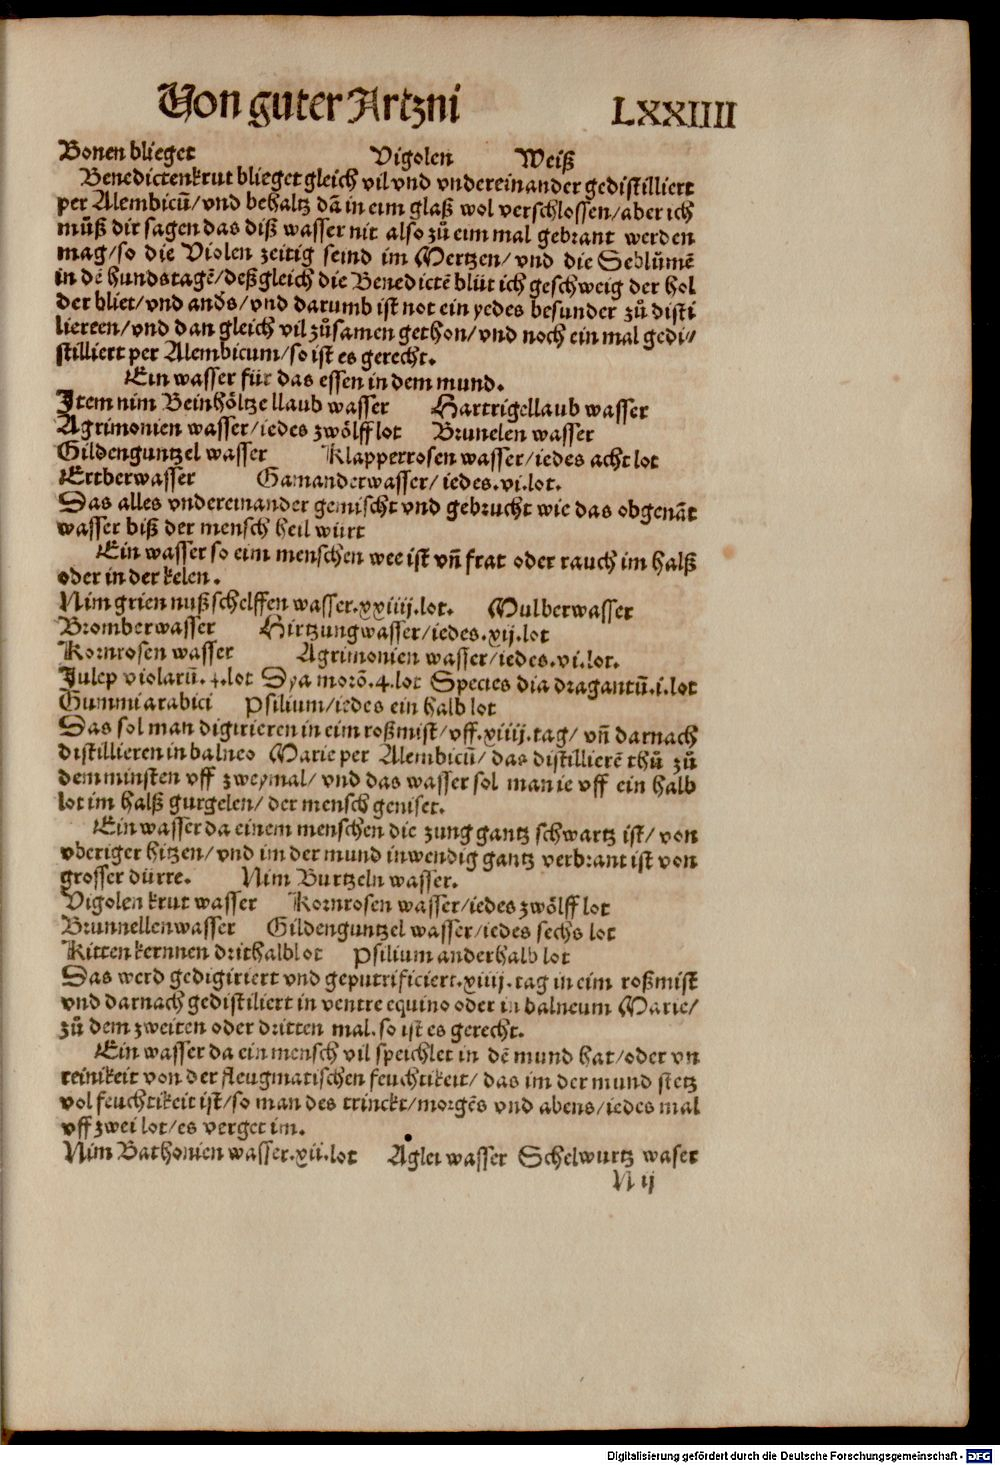 Von guter Artzni LXXIIII
Bonen blieget Vigolen Weiß
Benedictenkrut blieget gleich vil vnd vndereinander gedistilliert
per Alembicū/vnd behaltz dā in eim glaß wol verschlossen/aber ich
můß dir sagen das diß wasser nit also zů eim mal gebrant werden
mag/so die Violen zeitig seind im Mertzen/vnd die Seblůmē
in dē hundstagē/deßgleich die Benedictē blůt ich geschweig der hol
der bliet/vnd anders/vnd darumb ist not ein yedes besunder zů disti
liereen/vnd dan gleich vil zůsamen gethon/vnd noch ein mal gedi⸗
stilliert per Alembicum/so ist es gerecht.
Ein wasser für das essen in dem mund.
Item nim Beinhöltze llaub wasser Hartrigellaub wasser
Agrimonien wasser/iedes zwölff lot Brunelen wasser
Gildenguntzel wasser Klapperrosen wasser/iedes acht lot
Ertberwasser Gamanderwasser/iedes.vi.lot.
Das alles vndereinander gemischt vnd gebrucht wie das obgenāt
wasser biß der mensch heil würt
Ein wasser so eim menschen wee ist vñ frat oder rauch im halß
oder in der kelen.
Nim grien nußschelffen wasser.xxiiij.lot. Mulberwasser
Bromberwasser Hirtzungwasser/iedes.xij.lot
Kornrosen wasser Agrimonien wasser/iedes.vi.lot.
Julep violarū.4.lot Dya morō.4.lot Species dia dragantū.i.lot
Gummi arabici Psilium/iedes ein halb lot
Das sol man digirieren in eim roßmist/vff.xiiij.tag/vñ darnach
distillieren in balneo Marie per Alembicū/das distillierē thů zů
dem minsten vff zweymal/vnd das wasser sol man ie vff ein halb
lot im halß gurgelen/der mensch geniset.
Ein wasser da einem menschen die zung gantz schwartz ist/von
vberiger hitzen/vnd im der mund inwendig gantz verbrant ist von
grosser dürre. Nim Burtzeln wasser.
Vigolen krut wasser Kornrosen wasser/iedes zwölff lot
Brunnellenwasser Gildenguntzel wasser/iedes sechs lot
Kitten kernnen drithalb lot Psilium anderhalb lot
Das werd gedigiriert vnd geputrificiert.xiiij.tag in eim roßmist
vnd darnach gedistiliert in ventre equino oder in balneum Marie/
zů dem zweiten oder dritten mal.so ist es gerecht.
Ein wasser da ein mensch vil speichlet in dē mund hat/oder vn
reinikeit von der fleugmatischen feuchtikeit/das im der mund stetz
vol feuchtikeit ist/so man des trinckt/morgēs vnd abens/iedes mal
vff zwei lot/es verget im.
Nim Bathonien wasser.xii.lot Aglei wasser Schelwurtz waser
N ij
Digitalisierung gefördert durch die Deutsche Forschungsgemeinschaft - DFG